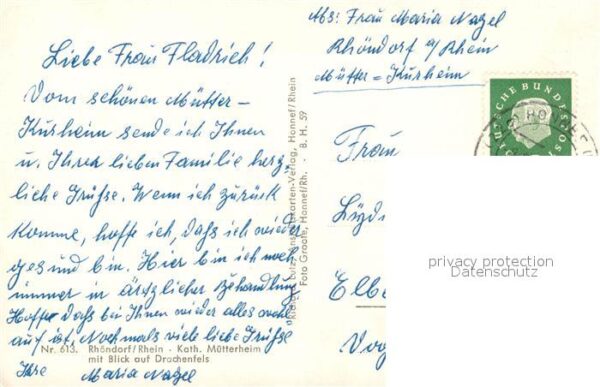 Abs: Frau Maria Nagel
Rhöndorf a/Rhein
Mütter = Kurheim
Liebe Frau Fladrich!
Vom schönen Mütter-
Kurheim sende ich Ihnen
u. Ihrer lieben Familie herz-
liche Grüße. Wenn ich zurück
komme, hoffe ich, daß ich wieder
gesund bin. Hier bin ich noch
immer in ärztlicher Behandlung
Hoffe daß bei Ihnen wieder alles wohl
auf ist. Nochmals viele liebe Grüße
Ihre Maria Nagel
Nr. 613. Rhöndorf/Rhein - Kath. Mütterheim
mit Blick auf Drachenfels
Ansichtskarten-Verlag, Honnef/Rhein
Foto Groote, Honnef/Rh. · B. H. 59
DEUTSCHE BUNDESPOST
HONNEF
Frau
Elbe
privacy protection
Datenschutz